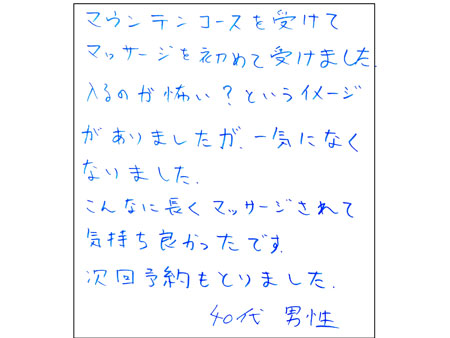 マウンテンコースを受けて
マッサージを初めて受けました.
入るのが怖い?というイメージ
がありましたが、一気になく
ないました.
こんなに長くマッサージされて
気持ち良かったです.
次回予約もとりました.
40代 男性